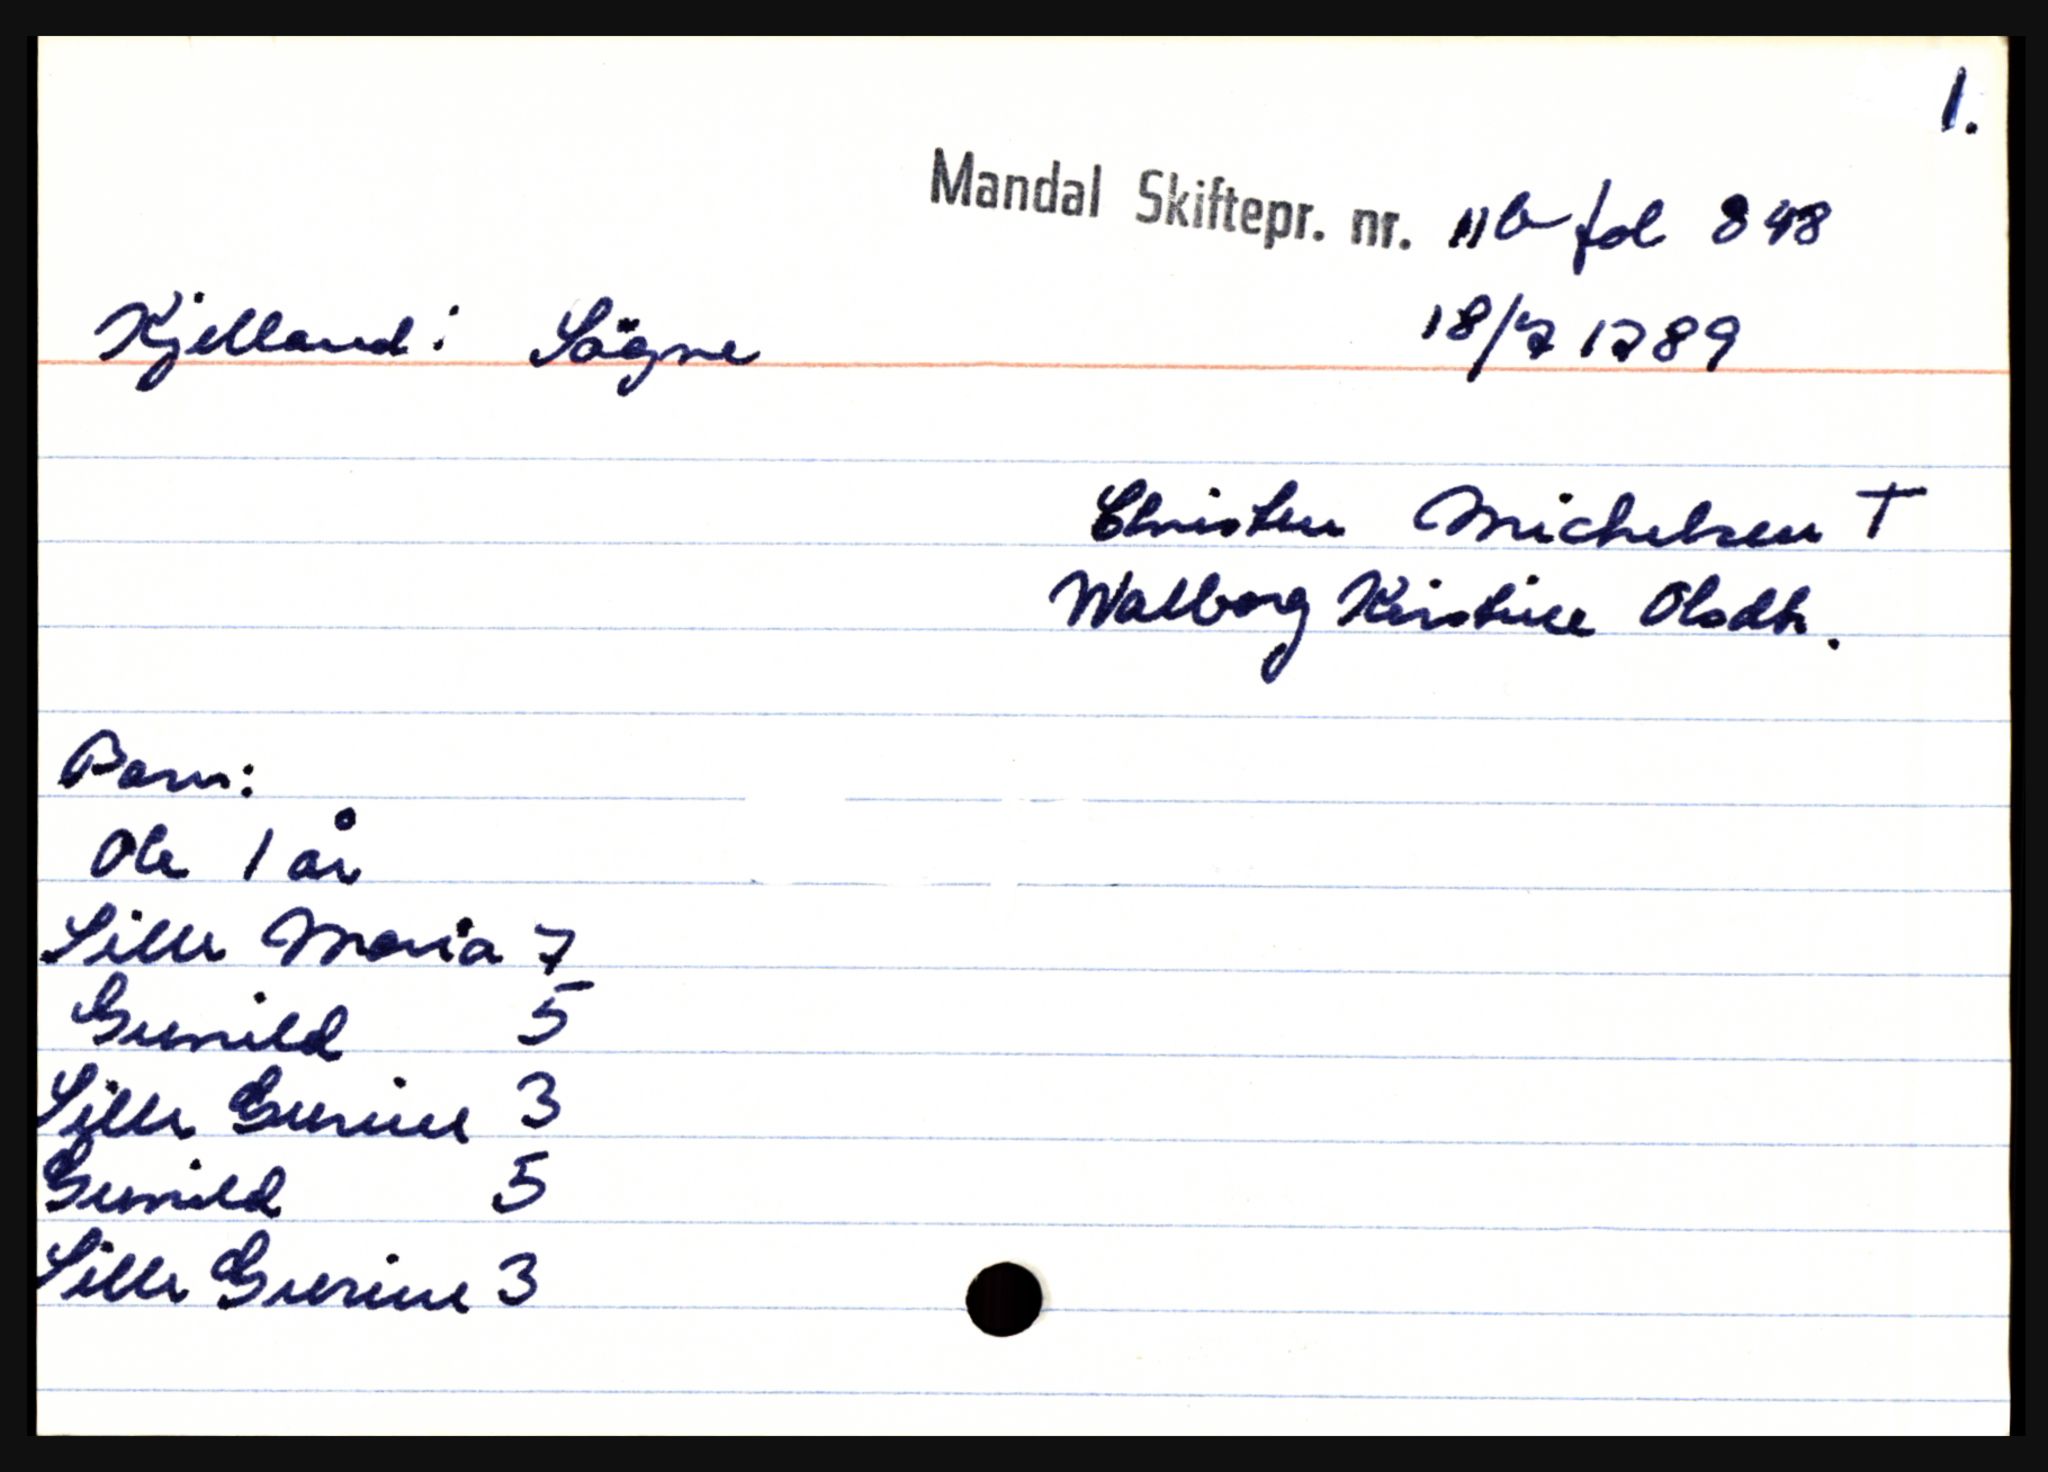 1.
Mandal Skiftepr. nr. 11b fol 848
Kjelland: Sögne 18/7 1789
Christen Michelsen †
Walborg Kirstine Olsdtr.
Barn:
Ole 1 år
Sille Maria 7
Gunild 5
Sille Gurine 3
Gunild 5
Sille Gurine 3